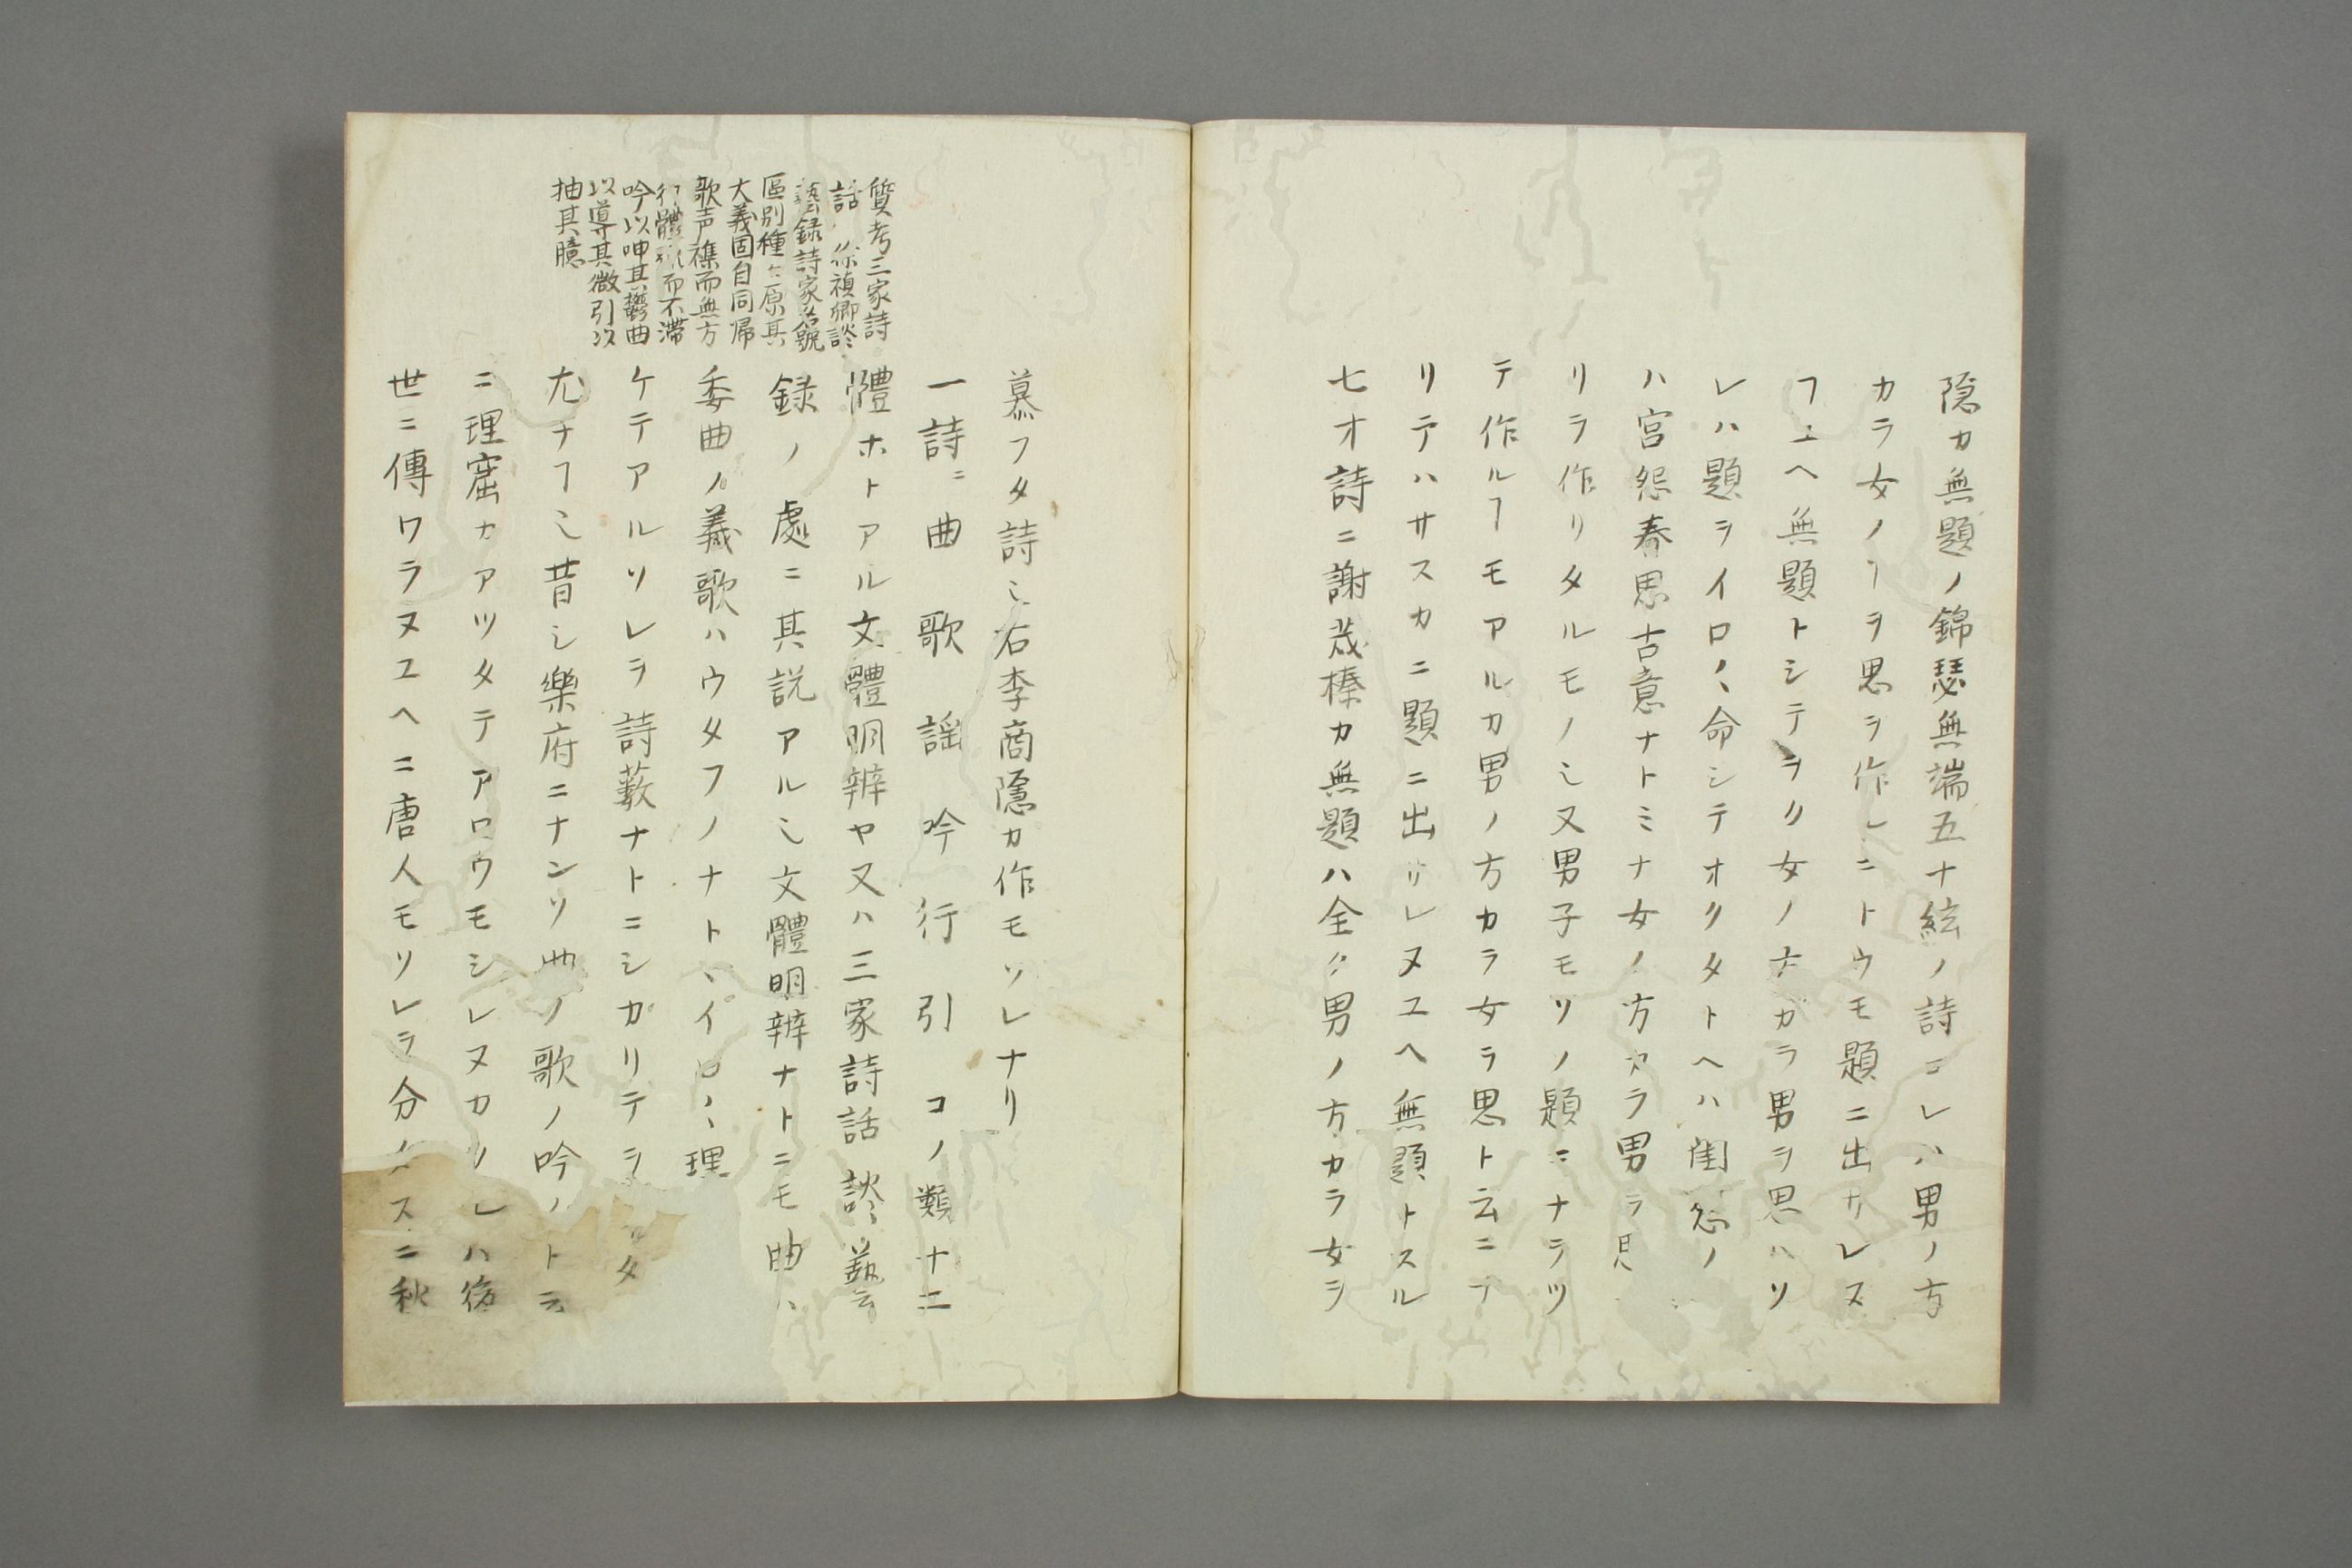 隠カ無題ノ錦瑟無端五十絃ノ詩コレハ男ノ方
カラ女ノヿヲ思ヲ作レニトウモ題ニ出サレス
フユヘ無題トシテヲク女ノ方カラ男ヲ思ハソ
レハ題ヲイロ〳〵命シテオクタトヘハ閨怨ノ
ハ宮怨春思古意ナトミナ女ノ方カラ男ラ見
リラ作リタルモノ乄又男子モソノ題ニナラツ
テ作ルヿモアルカ男ノ方カラ女ラ思ト云ニ
リテハサスカニ題ニ出サレヌユヘ無題トスル
七才詩ニ謝茂榛カ無題ハ全ク男ノ方カラ女ヲ
慕フタ詩也右李商隱カ作モソレナリ
一詩ニ曲歌謡吟行引コノ類十二
體ホトアル文體明辨ヤ又ハ三家詩話談藝
録ノ處ニ其説アル也文體明辨ナトニモ曲ハ
委曲ノ義歌ハウタフノナトヽイロ〳〵理
ケテアルソレヲ詩藪ナトニシカリテ
尤ナヿ也昔シ樂府ニナンソ曲ノ歌ノ吟ノト云
ニ理窟カアツタテアロウモシレヌカソレハ後
世ニ傳ワラヌユヘニ唐人モソレラ分ノスニ秋
質考三家詩
話徐禎卿談
藝録詩家名號
區別種々原其
大義固自同帰
歌声襍而無方
行體疏而不滯
吟以呻其鬱曲
以導其微引以
抽其臆